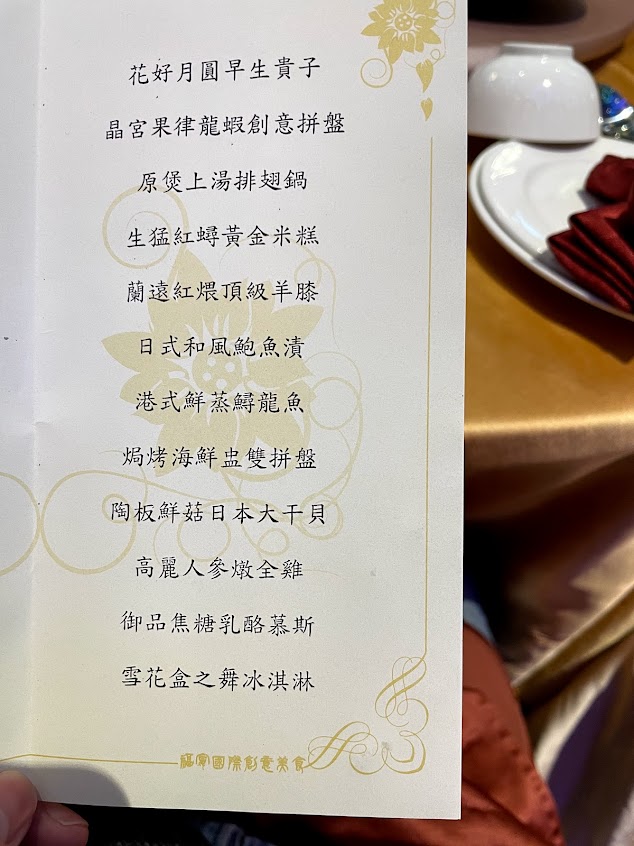 花好月圓早生貴子
晶宮果律龍蝦創意拼盤
原煲上湯排翅鍋
生猛紅蟳黃金米糕
蘭遠紅煨頂級羊膝
日式和風鮑魚漬
港式鮮蒸鱘龍魚
焗烤海鮮盅雙拼盤
陶板鮮菇日本大干貝
高麗人參燉全雞
御品焦糖乳酪慕斯
雪花盒之舞冰淇淋
國際創意美食